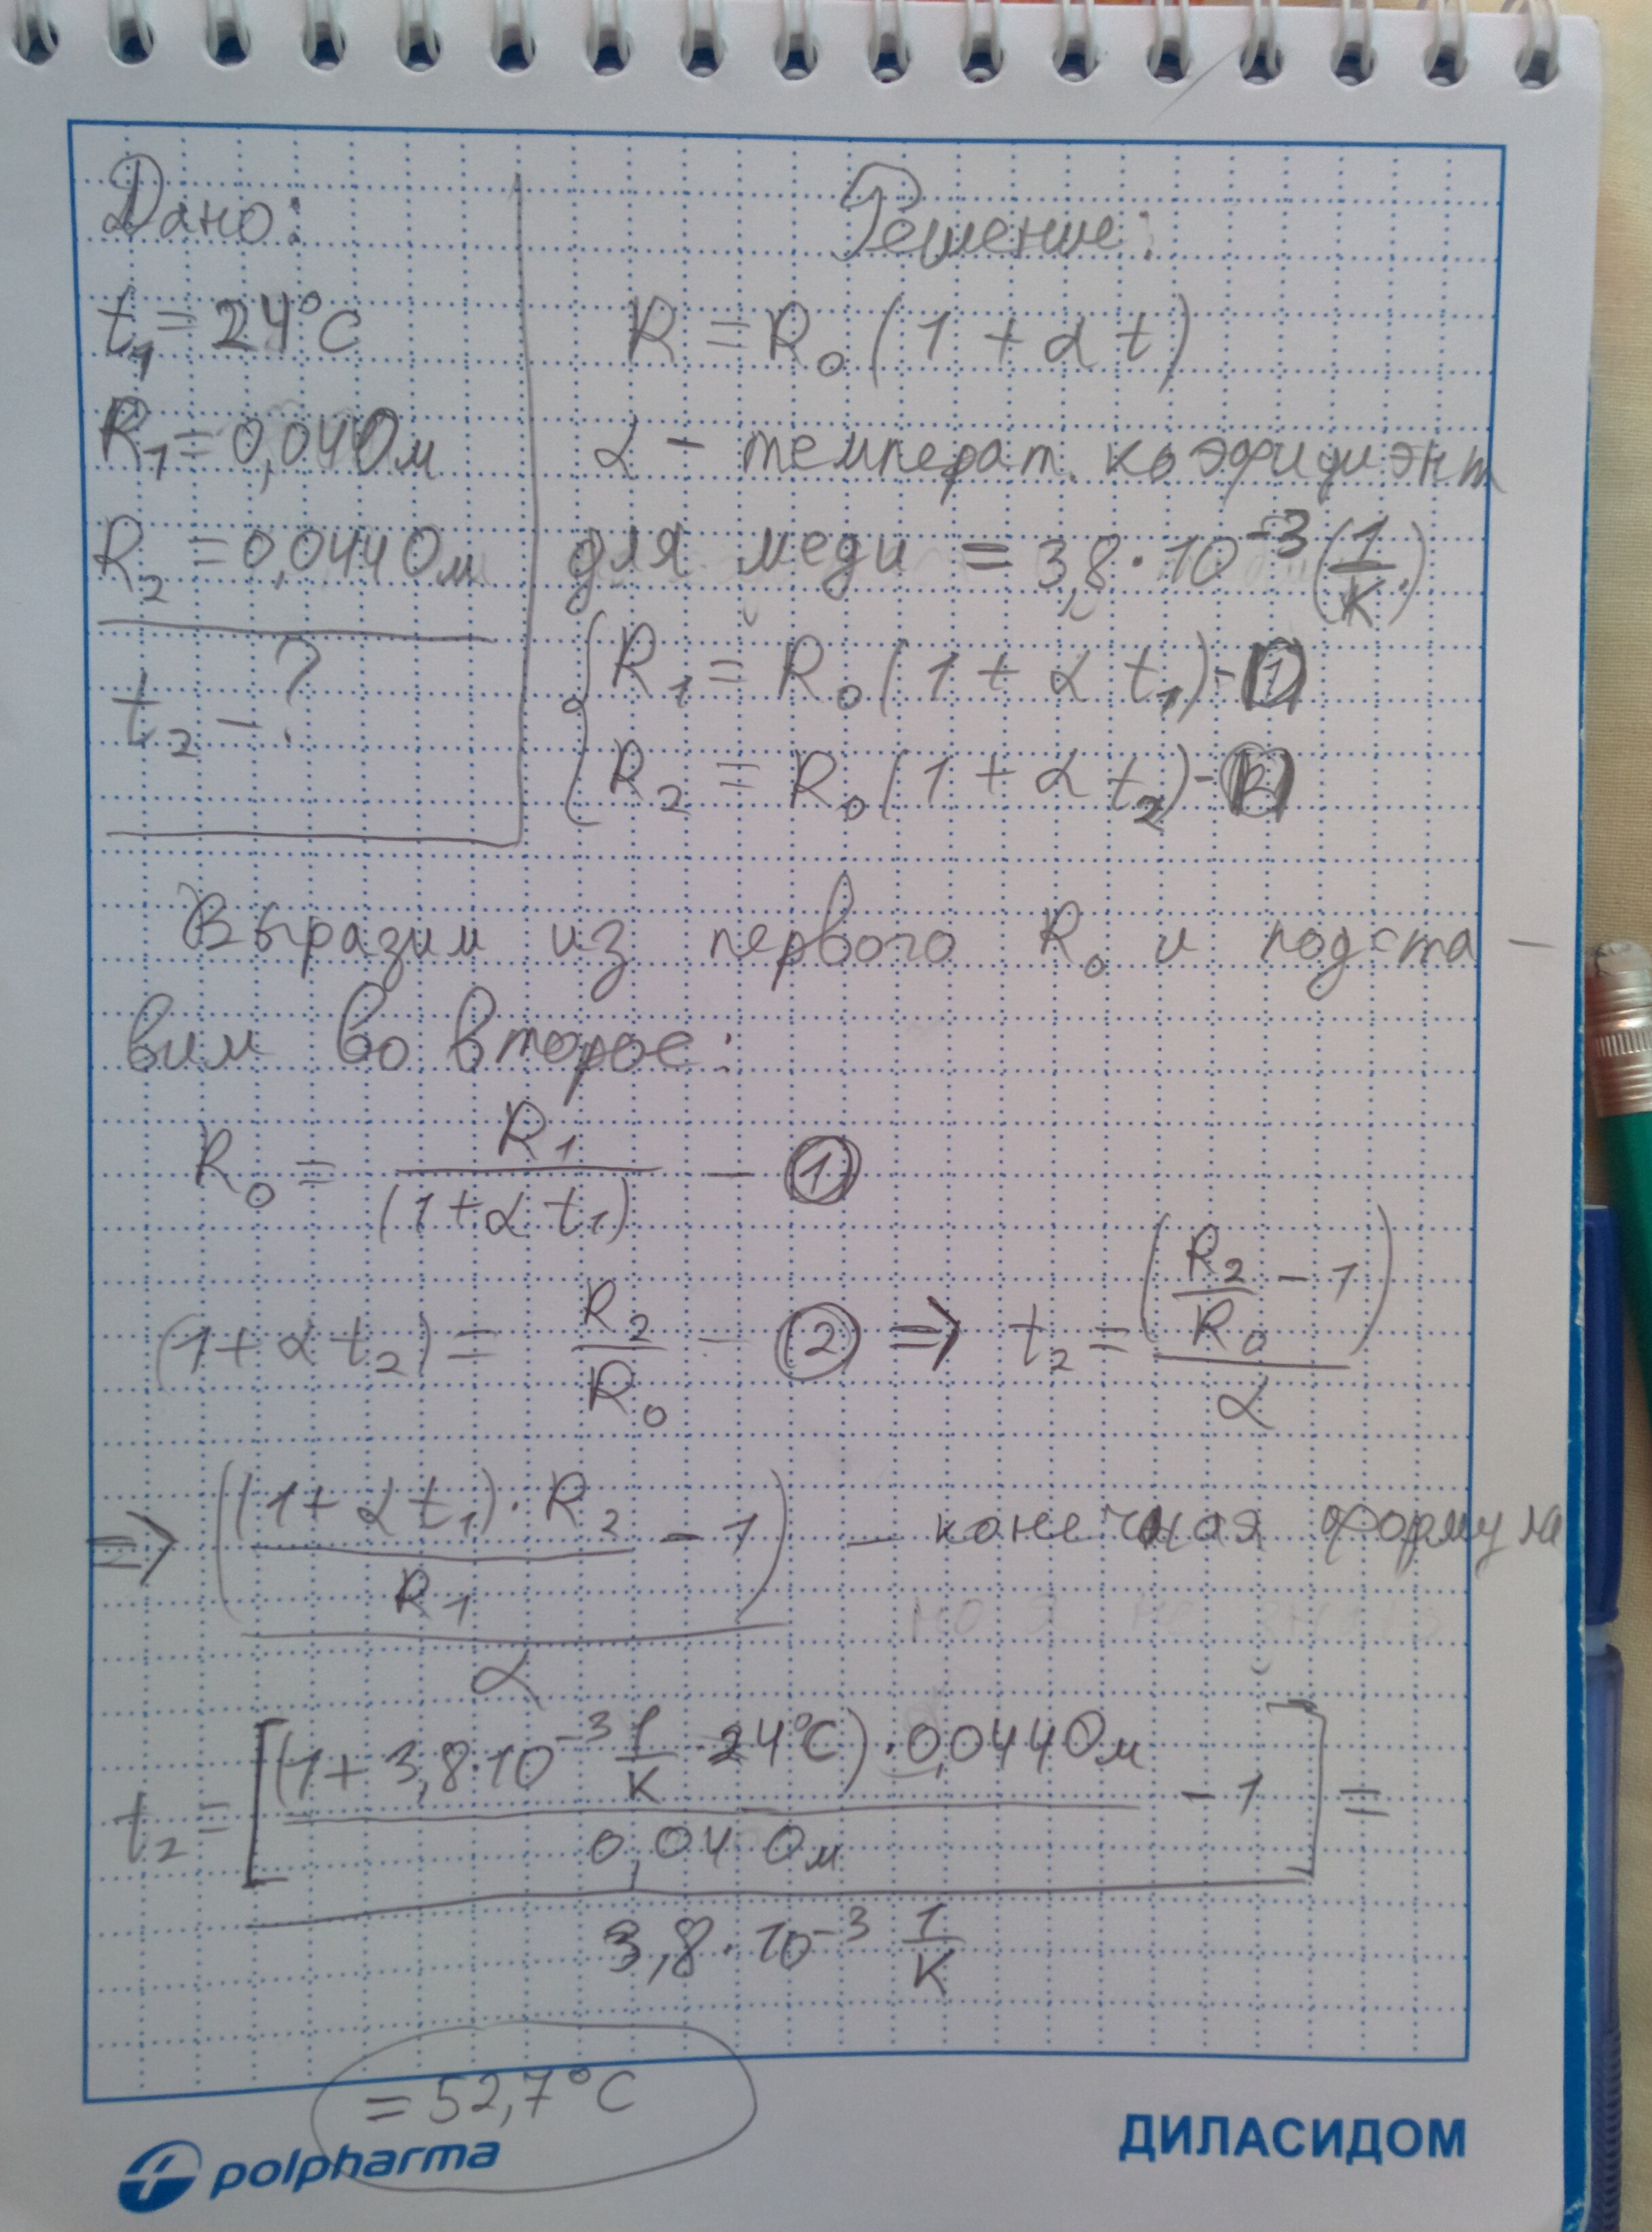 Дано:
t₁ = 24°C
R₁ = 0,04 Ом
R₂ = 0,044 Ом
t₂ - ?
Решение:
R = R₀ (1 + α t)
α - температ. коэфициэнт
для меди = 3,8 · 10⁻³ (1/K)
R₁ = R₀ (1 + α t₁) - ①
R₂ = R₀ (1 + α t₂) - ②
Выразим из первого R₀ и подста -
вим во второе:
R₀ = R₁ / (1 + α t₁) - ①
(1 + α t₂) = R₂ / R₀ - ② => t₂ = (R₂ / R₀ - 1) / α
=> ((1 + α t₁) · R₂ / R₁ - 1) / α - конечная формула
t₂ = [(1 + 3,8 · 10⁻³ 1/K · 24°C) · 0,044 Ом / 0,04 Ом - 1] / 3,8 · 10⁻³ 1/K =
= 52,7°C
polpharma
ДИЛАСИДОМ